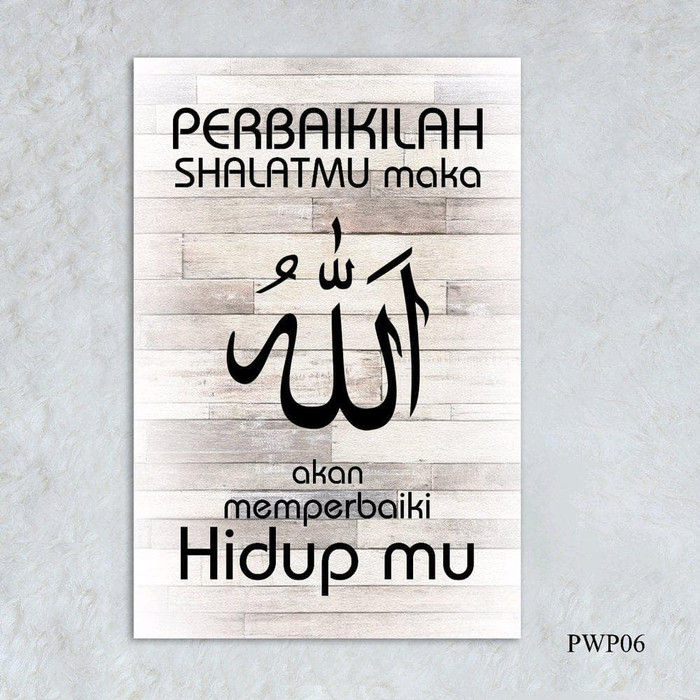 PERBAIKILAH
SHALATMU maka
الله
akan
memperbaiki
Hidup mu
PWP06